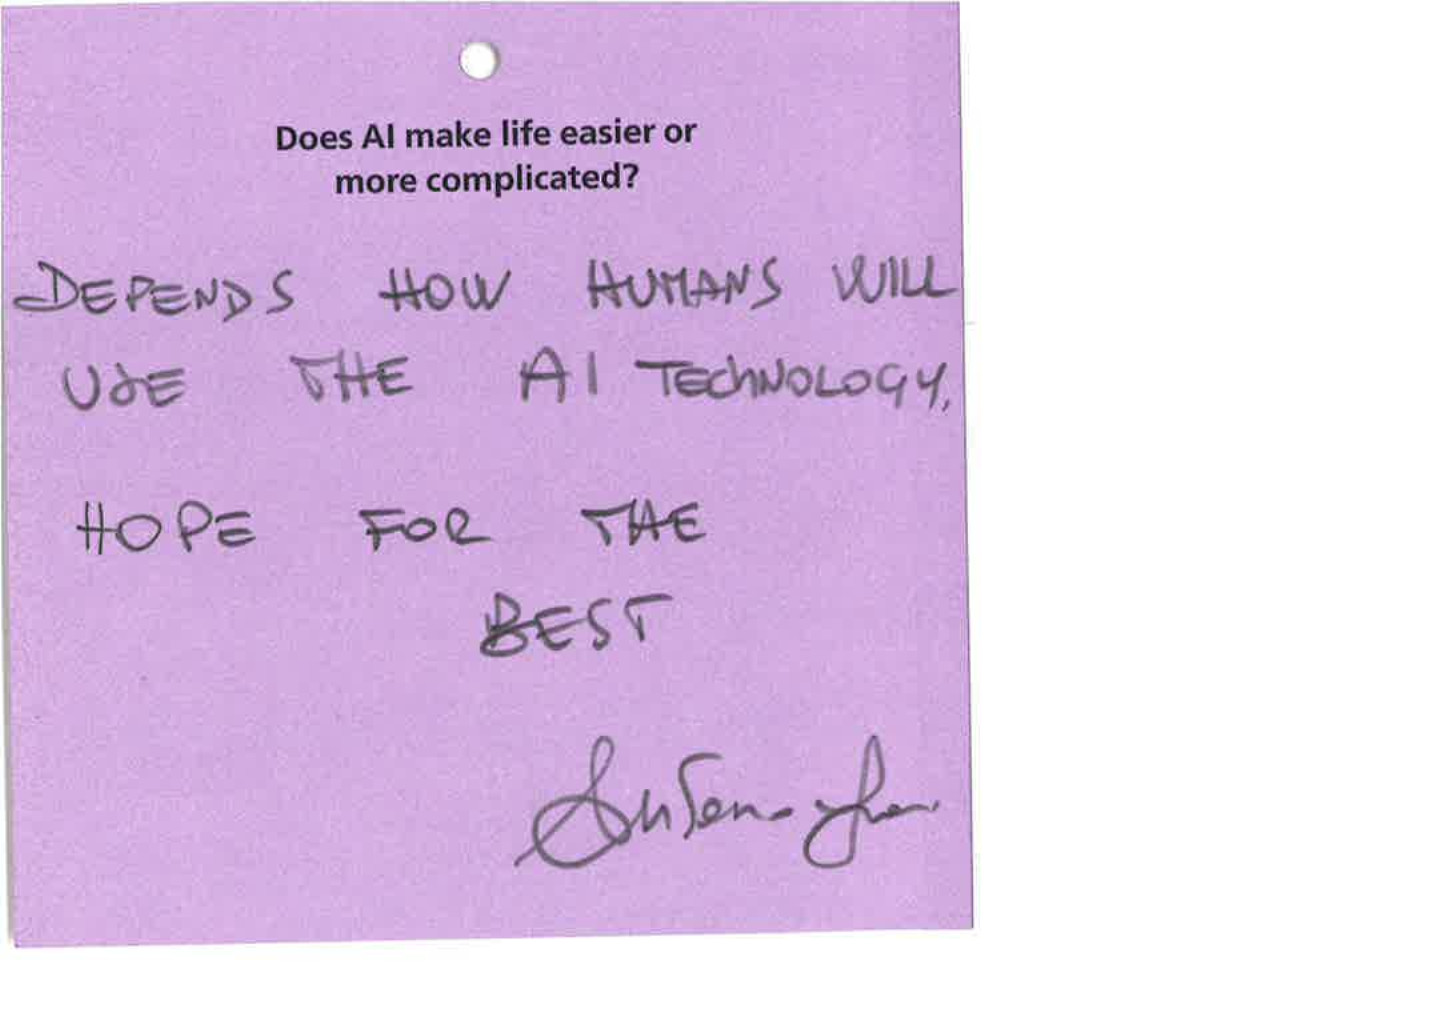 Does AI make life easier or
more complicated?
DEPENDS HOW HUMANS WILL
USE THE AI TECHNOLOGY,
HOPE FOR THE
BEST